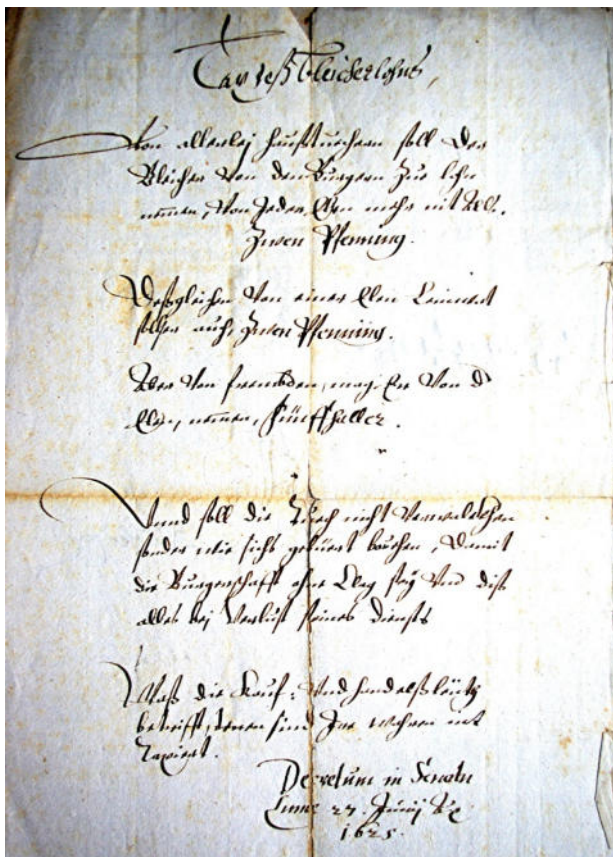 Tax deß Bleicherlohns,
Von allerlej haußtuechern soll der
Bleicher von den Burgern zue lohn
nemen, von Jeder Elen mehr nit Als.
Zwen Pfenning.
Deßgleichen Von einer Elen Leinwat
soll er auch Zwen Pfenning.
Aber von frembden, mag Er von d
Elen, nemen, Fünff haller.
Vnnd soll die Tuech nicht
sonder wie sichs gebüert bauchen, damit
die Burgerschafft ohne Clag sey vnd diß
alles bej Verlust seines diensts
Waß die Kauf- Vnd handelßleüth
betrifft, denen sind Ire wahren nit
Taxiert.
Decretum in Senatu
27. Junij
1625.